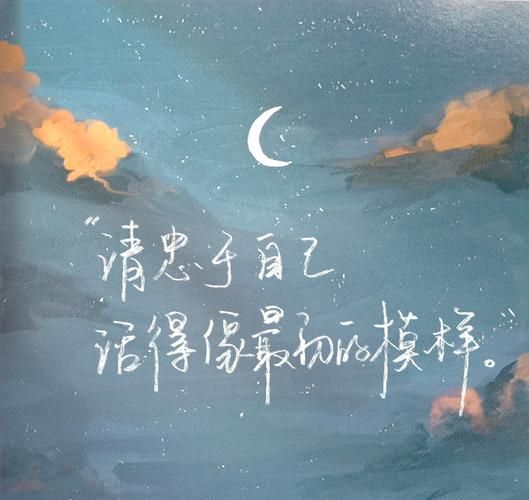 “请忠于自己
活得像最初的模样。”